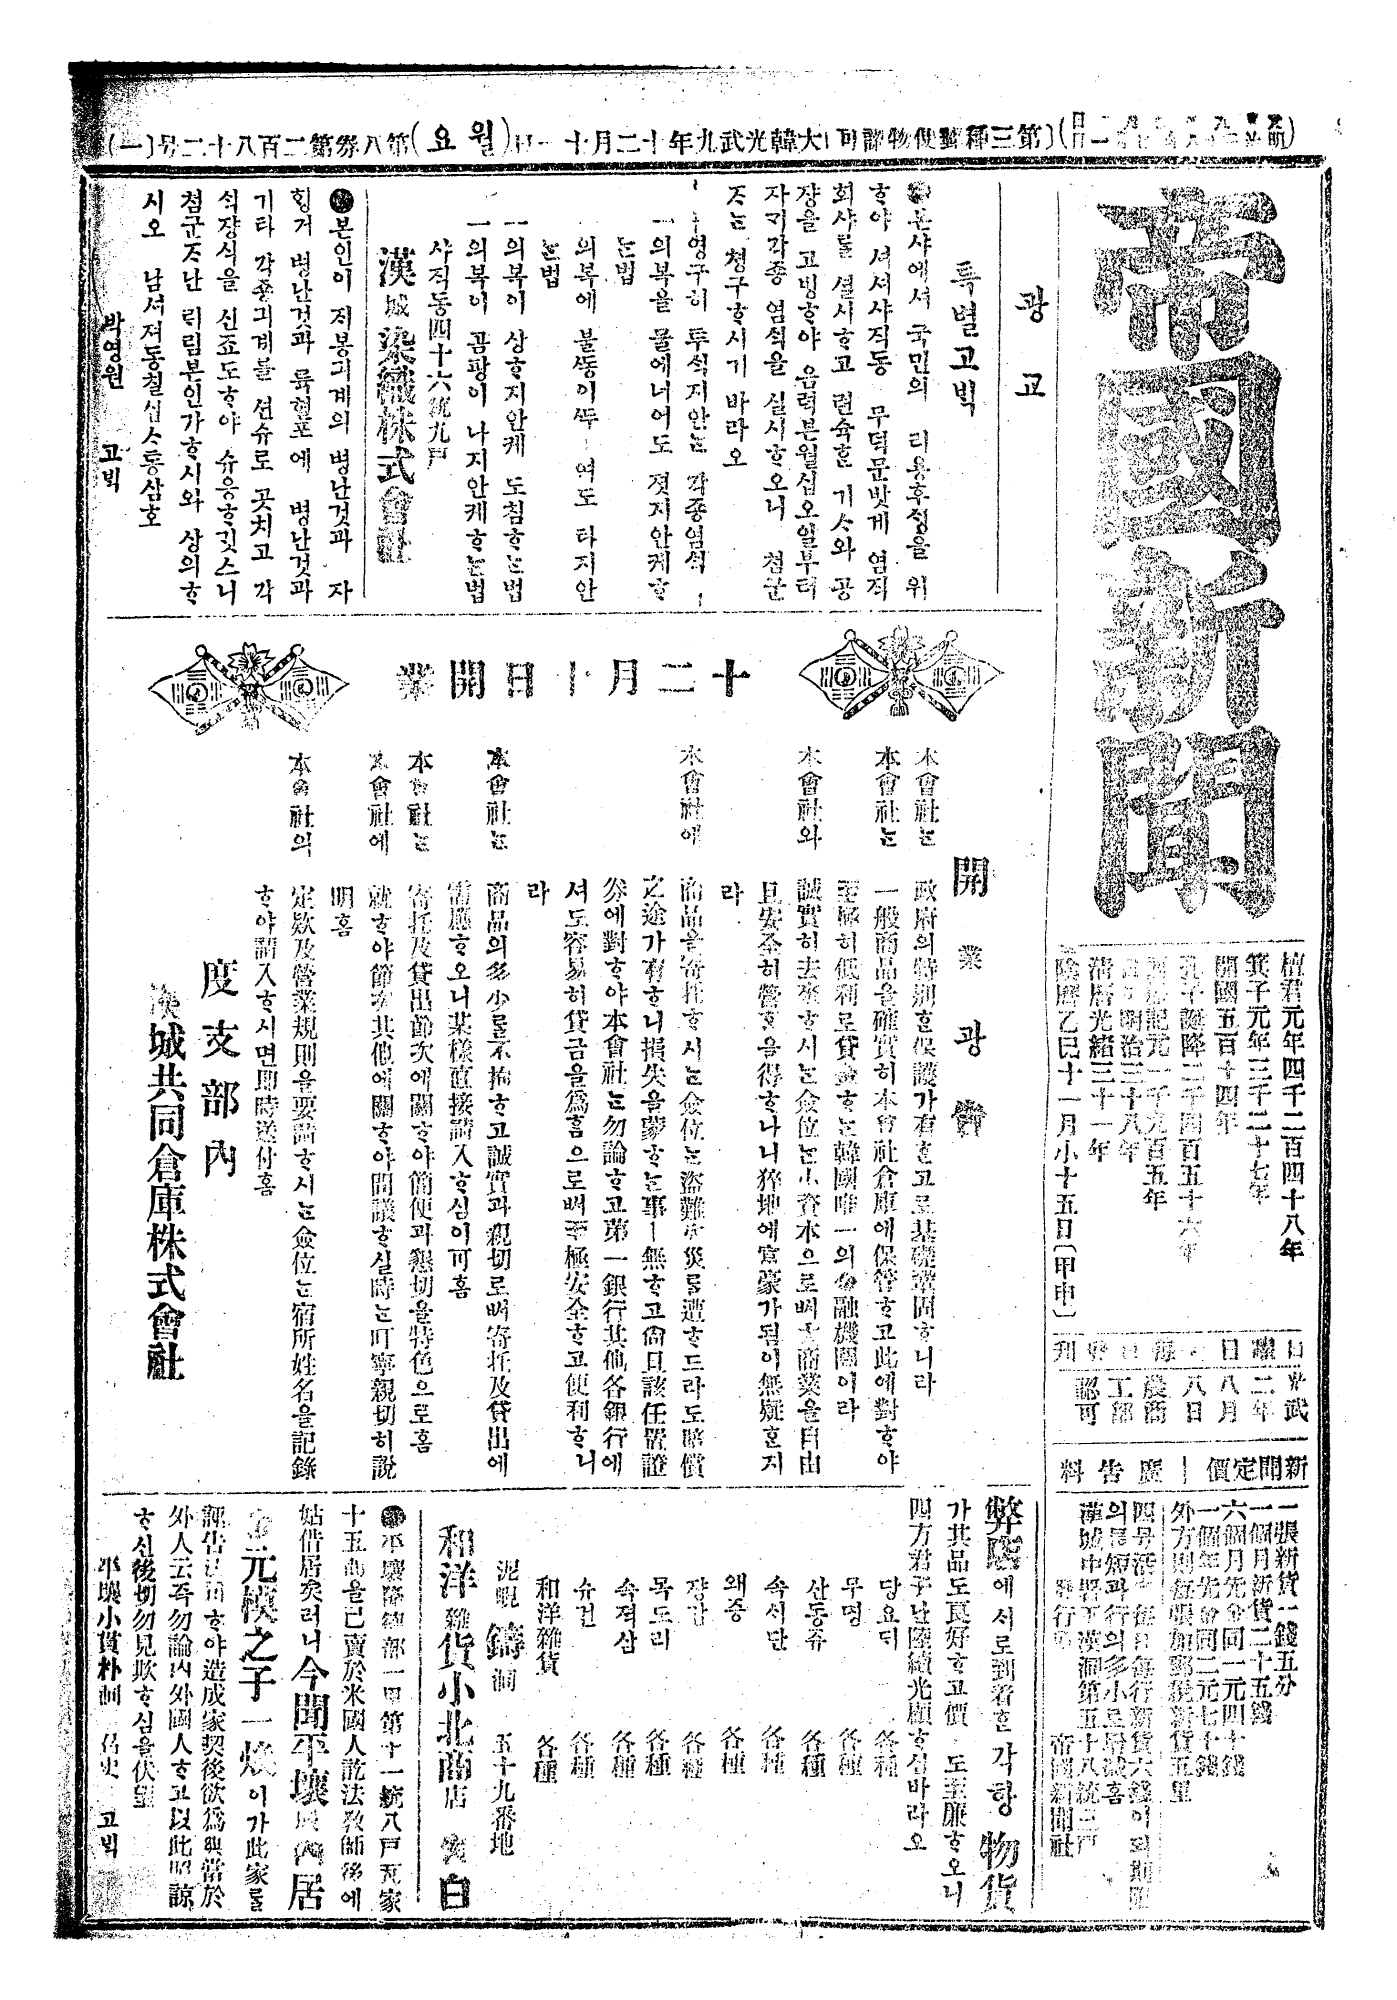 (一)号二十八百二第券八第(요월)日一十月二十年九武光韓大
帝國新聞
檀君元年四千二百四十八年
箕子元年三千二十七年
開國五百十四年
孔子誕降二千四百五十六年
明治三十八年
淸曆光緖三十一年
陰曆乙巳十一月小十五日(甲申)
新聞定價
廣告料
一張新貨一錢五分
一個月新貨二十五錢
六個月先金同一元四十錢
一個年先金同二元七十錢
外方則每張加郵稅新貨五里
四号活字每日每行新貨六錢이되期限
의長短과行의多小로增減홈
漢城中署下漢洞第五十八統三戶
發行所 帝國新聞社
광고
특별고빅
본샤에셔 국민의 리용후성을 위
ᄒᆞ야 셔셔샤직동 무덕문밧게 염직
회샤를 셜시ᄒᆞ고 련슉ᄒᆞᆫ 기ᄉᆞ와 공
쟝을 고빙ᄒᆞ야 음력본월십오일부터
자긔각죵 염식을 실시ᄒᆞ오니 쳠군
ᄌᆞᄂᆞᆫ 쳥구ᄒᆞ시기 바라오
一영구히 투식지안ᄂᆞᆫ 각죵염식
一의복을 물에너어도 졋지안케ᄒᆞ
ᄂᆞᆫ법
의복에 불ᄯᅩᆼ이 여도 타지안
ᄂᆞᆫ법
一의복이 상ᄒᆞ지안케 도침ᄒᆞᄂᆞᆫ법
一의복이 곰팡이 나지안케ᄒᆞᄂᆞᆫ법
샤직동四十六統九戶
漢城染織株式會社
본인이 져봉긔계의 병난것과 자
힝거 병난것과 륙혈포에 병난것과
기타 각죵긔계를 션슈로 곳치고 각
식쟝식을 신죠도ᄒᆞ야 슈응ᄒᆞ깃스니
쳠군ᄌᆞ난 릭림부인가ᄒᆞ시와 상의ᄒᆞ
시오 남셔져동칠십ᄉᆞ통삼호
박영원 고빅
十二月十日開業
開業廣告
本會社ᄂᆞᆫ 政府의特別ᄒᆞᆫ保護가有ᄒᆞ고로基礎鞏固ᄒᆞ니라
本會社ᄂᆞᆫ 一般商品을確實히本會社倉庫에保管ᄒᆞ고此에對ᄒᆞ야
至極히低利로貸金ᄒᆞᄂᆞᆫ韓國唯一의金融機關이라
本會社와 誠實히去來ᄒᆞ시ᄂᆞᆫ僉位ᄂᆞᆫ小資本으로ᄡᅥ大商業을自由
且安全히營ᄒᆞᆷ을得ᄒᆞ나니猝地에富豪가됨이無疑ᄒᆞᆫ지
라
本會社에 商品을寄托ᄒᆞ시ᄂᆞᆫ僉位ᄂᆞᆫ盜難火災를遭ᄒᆞ드라도賠償
之途가有ᄒᆞ니損失을蒙ᄒᆞᄂᆞᆫ事ㅣ無ᄒᆞ고尙且該任置證
券에對ᄒᆞ야本會社ᄂᆞᆫ勿論ᄒᆞ고第一銀行其他各銀行에
셔도容易히貸金을爲ᄒᆞᆷ으로ᄡᅥ至極安全ᄒᆞ고便利ᄒᆞ니
라
本會社ᄂᆞᆫ 商品의多少를不拘ᄒᆞ고誠實과親切로ᄡᅥ寄托及貸出에
需應ᄒᆞ오니某樣直接請入ᄒᆞ심이可홈
本會社ᄂᆞᆫ 寄托及貸出節次에關ᄒᆞ야簡便과懇切을特色으로홈
本會社에 就ᄒᆞ야節次其他에關ᄒᆞ야問議ᄒᆞ실時ᄂᆞᆫ叮寧親切히說
明홈
本會社의 定款及營業規則을要請ᄒᆞ시ᄂᆞᆫ僉位ᄂᆞᆫ宿所姓名을記錄
ᄒᆞ야請入ᄒᆞ시면即時送付홈
度支部內
漢城共同倉庫株式會社
弊店에셔로到着ᄒᆞᆫ각항物貨
가其品도良好ᄒᆞ고價도至廉ᄒᆞ오니
四方君子난陸續光顧ᄒᆞ심바라오
당요디 各種
무명 各種
산동쥬 各種
속셔단 各種
왜증 各種
쟝갑 各種
목도리 各種
속젹삼 各種
슈건 各種
和洋雜貨 各種
泥峴鑄洞 五十九番地
和洋雜貨小北商店 告白
平壤隆德部一里第十一統八戶瓦家
十五間을已賣於米國人訖法敎師後에
姑借居矣러니今聞平壤城內居
金元模之子一煥이가此家를
誣告法司ᄒᆞ야造成家契後欲爲典當於
外人云즉勿論內外國人ᄒᆞ고以此照諒
ᄒᆞ신後切勿見欺ᄒᆞ심을伏望
平壤小貫朴洞 고빅